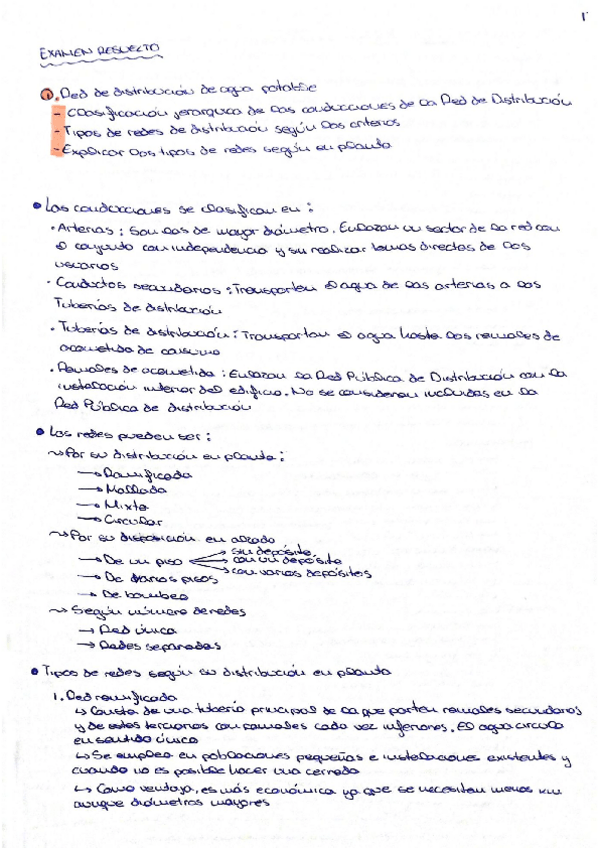 1
EXAMEN RESUELTO
1. Red de distribución de agua potable
- Clasificación jerarquica de las conducciones de la Red de Distribución
- Tipos de redes de distribución según los criterios
- Explicar los tipos de redes según en planta
• Las conducciones se clasifican en :
· Arterias : Son las de mayor diámetro. Enlazan un sector de la red con
el conjunto con independencia y sin realizar tomas directas de los
usuarios
· Conductos secundarios : Transporten el agua de las arterias a las
Tuberías de distribución
· Tuberías de distribución : Transporten el agua hasta los ramales de
acometida de consumo
· Ramales de acometida : Enlazan la Red Pública de Distribución con la
instalación interior del edificio. No se consideran incluidas en la
Red Pública de distribución
• Las redes pueden ser :
~> Por su distribución en planta :
→ Ramificada
→ Mallada
→ Mixta
→ Circular
~> Por su disposición en alzado
→ De un piso → sin depósito
→ con un depósito
→ con varios depósitos
→ De varios pisos
→ De bombeo
~> Según número de redes
→ Red única
→ Redes separadas
• Tipos de redes según su distribución en planta
1. Red ramificada
↳ Consta de una tubería principal de la que parten ramales secundarios
y de estos terciarios con ramales cada vez inferiores. El agua circula
en sentido único
↳ Se emplea en poblaciones pequeñas e instalaciones existentes y
cuando no es posible hacer una cerrada
↳ Como ventaja, es más económica ya que se necesiten menos km
aunque diámetros mayores